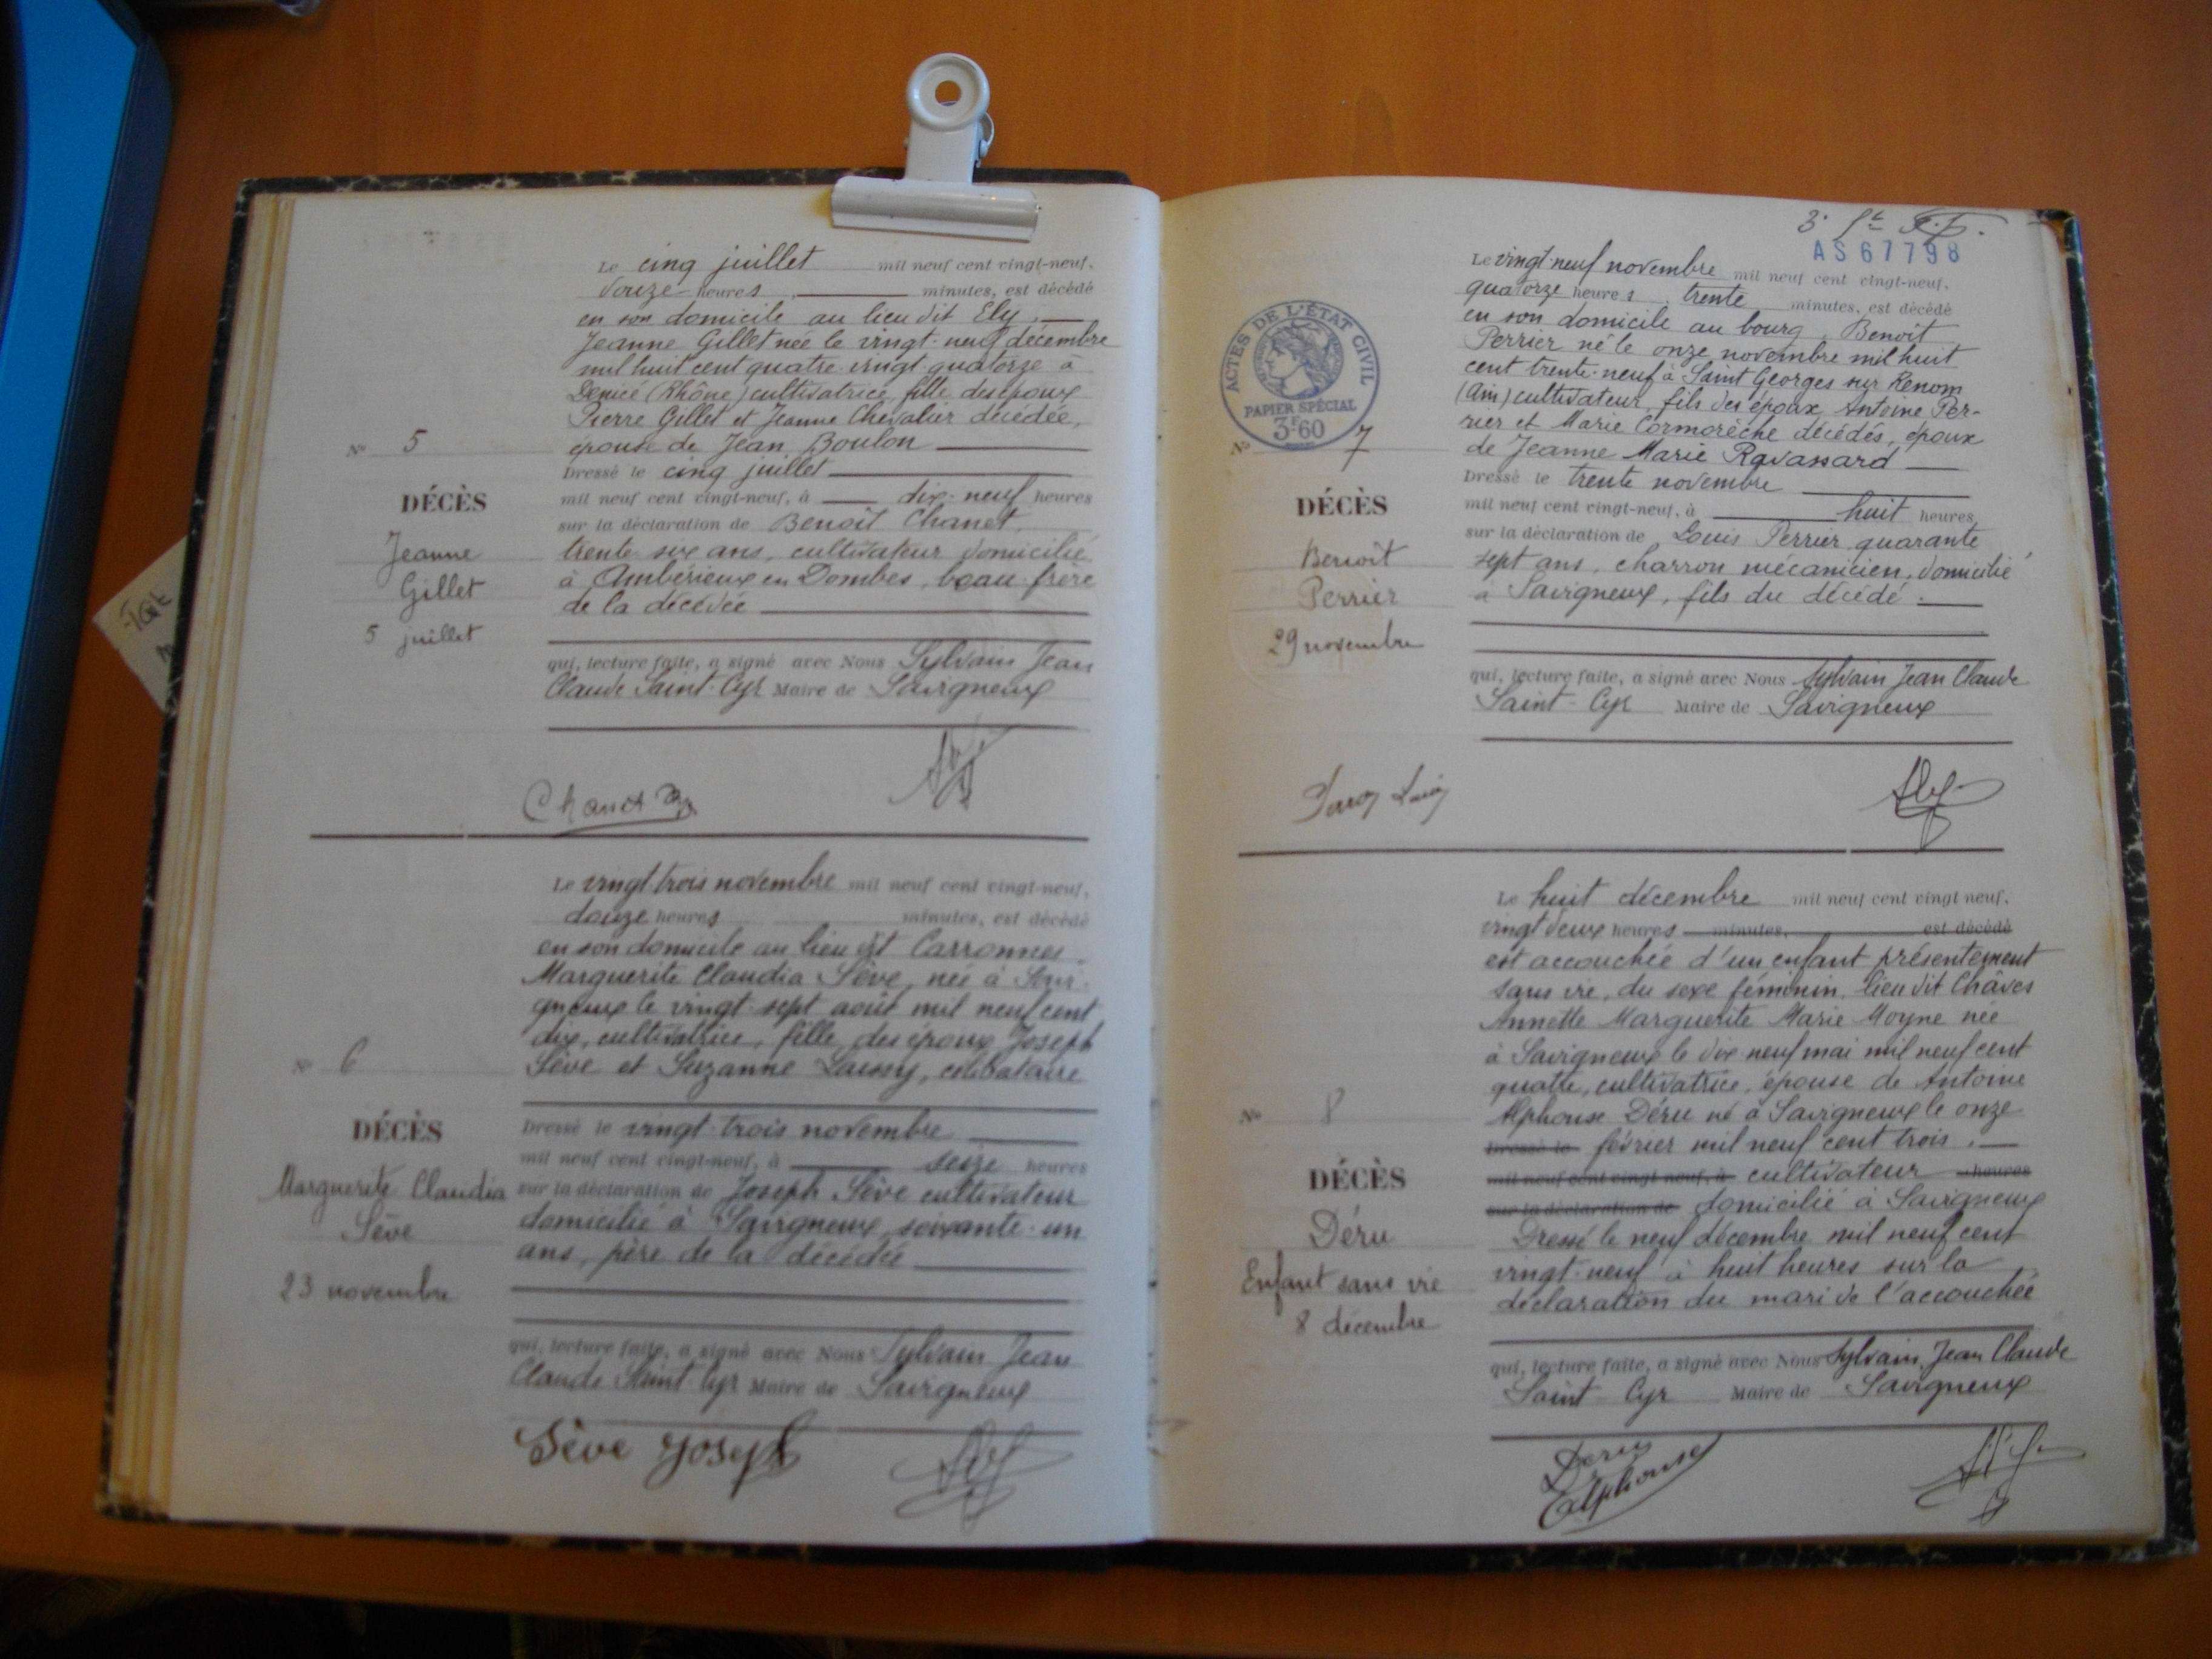 Le cinq juillet mil neuf cent vingt-neuf,
douze heures minutes, est décédé
en son domicile au lieu dit Ely,
Jeanne Gillet née le vingt-neuf décembre
mil huit cent quatre-vingt-quatorze à
Denicé (Rhône) cultivatrice, fille des époux
Pierre Gillet et Jeanne Chevalier décédée,
épouse de Jean Boulon
Dressé le cinq juillet
mil neuf cent vingt-neuf, à dix-neuf heures
sur la déclaration de Benoît Chanet,
trente-six ans, cultivateur domicilié
à Ambérieux en Dombes, beau-frère
de la décédée
qui, lecture faite, a signé avec Nous Sylvain Jean
Claude Saint-Cyr Maire de Savigneux
N° 5
DÉCÈS
Jeanne
Gillet
5 juillet
Chanet
Le vingt-trois novembre mil neuf cent vingt-neuf,
douze heures minutes, est décédé
en son domicile au lieu dit Carronnes
Marguerite Claudia Sève, née à Savi-
gneux le vingt-sept août mil neuf cent
dix, cultivatrice, fille des époux Joseph
Sève et Suzanne célibataire
Dressé le vingt-trois novembre
mil neuf cent vingt-neuf, à seize heures
sur la déclaration de Joseph Sève cultivateur
domicilié à Savigneux, soixante-un
ans, père de la décédée
qui, lecture faite, a signé avec Nous Sylvain Jean
Claude Saint Cyr Maire de Savigneux
N° 6
DÉCÈS
Marguerite Claudia
Sève
23 novembre
Sève Joseph
AS 67798
ACTES DE L'ÉTAT CIVIL
PAPIER SPÉCIAL
3F60
Le vingt-neuf novembre mil neuf cent vingt-neuf,
quatorze heures, trente minutes, est décédé
en son domicile au bourg, Benoît
Perrier né le onze novembre mil huit
cent trente-neuf à Saint Georges sur Renom
(Ain) cultivateur, fils des époux Antoine Per-
rier et Marie Cormorèche décédés, époux
de Jeanne Marie Ravassard
Dressé le trente novembre
mil neuf cent vingt-neuf, à huit heures
sur la déclaration de Louis Perrier quarante
sept ans, charron mécanicien, domicilié
à Savigneux, fils du décédé.
qui, lecture faite, a signé avec Nous Sylvain Jean Claude
Saint-Cyr Maire de Savigneux
N° 7
DÉCÈS
Benoît
Perrier
29 novembre
Le huit décembre mil neuf cent vingt-neuf,
vingt deux heures minutes, est décédé
est accouchée d'un enfant présentement
sans vie, du sexe féminin, lieu dit Châves
Annette Marguerite Marie Moyne née
à Savigneux le dix-neuf mai mil neuf cent
quatre, cultivatrice, épouse de Antoine
Alphonse Déru né à Savigneux le onze
Dressé le février mil neuf cent trois,
mil neuf cent vingt-neuf, à cultivateur heures
sur la déclaration de domicilié à Savigneux
Dressé le neuf décembre mil neuf cent
vingt-neuf à huit heures sur la
déclaration du mari de l'accouchée
qui, lecture faite, a signé avec Nous Sylvain Jean Claude
Saint Cyr Maire de Savigneux
N° 8
DÉCÈS
Déru
Enfant sans vie
8 décembre
Deru
Alphonse